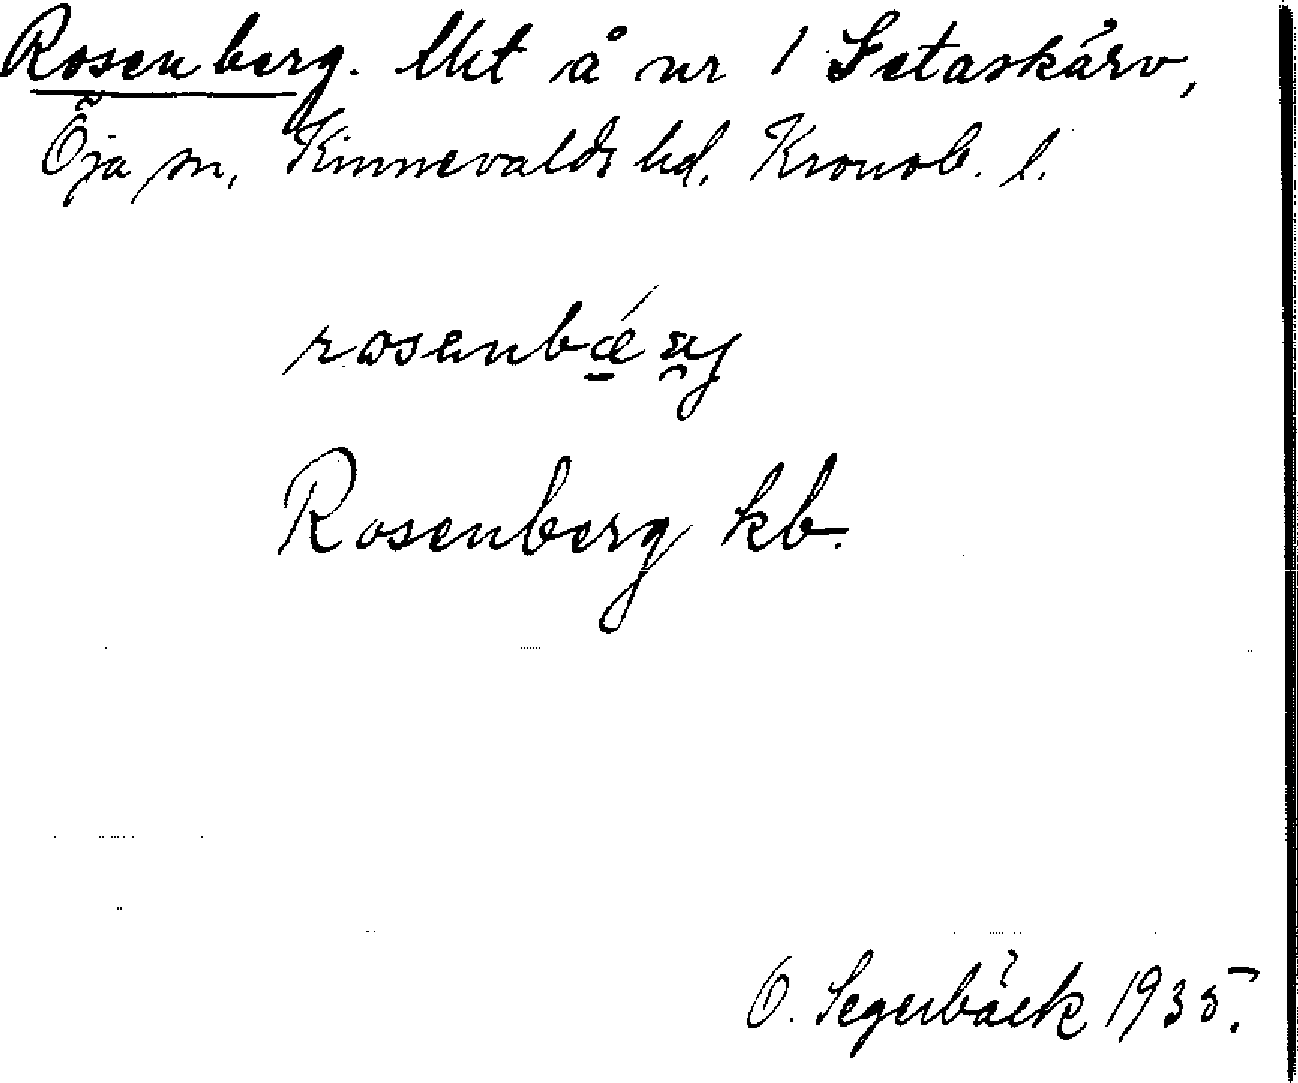 Rosenberg. Lht å nr 1 Fetaskärv,
Öja sn, Kinnevalds hd, Kronob. l.
rosenbǽrg
Rosenberg kb.
O. Segerbäck 1935.